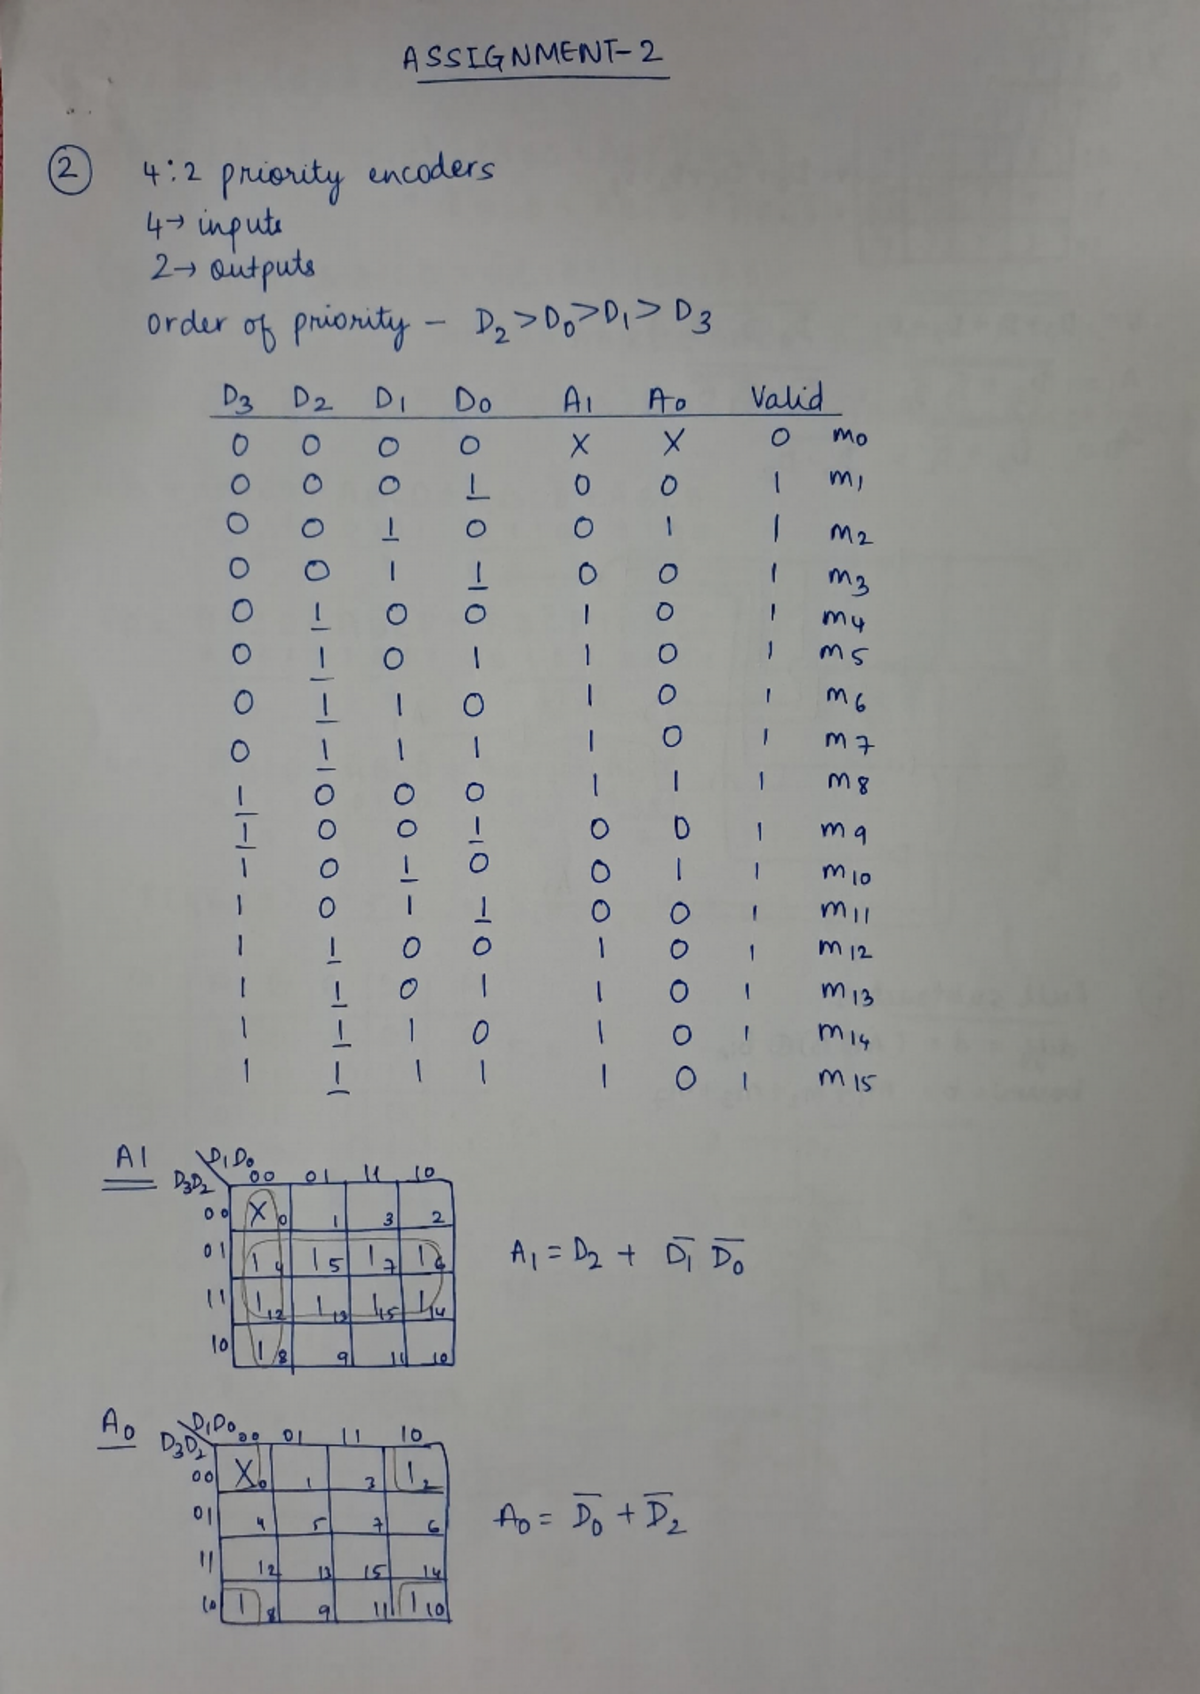 ASSIGNMENT-2
② 4:2 priority encoders
4→ inputs
2→ outputs
order of priority – D₂>D₀>D₁>D₃
D₃ D₂ D₁ D₀ A₁ A₀ Valid
0 0 0 0 X X 0 m₀
0 0 0 1 0 0 1 m₁
0 0 1 0 0 1 1 m₂
0 0 1 1 0 0 1 m₃
0 1 0 0 1 0 1 m₄
0 1 0 1 1 0 1 m₅
0 1 1 0 1 0 1 m₆
0 1 1 1 1 0 1 m₇
1 0 0 0 1 1 1 m₈
1 0 0 1 0 0 1 m₉
1 0 1 0 0 1 1 m₁₀
1 0 1 1 0 0 1 m₁₁
1 1 0 0 1 0 1 m₁₂
1 1 0 1 1 0 1 m₁₃
1 1 1 0 1 0 1 m₁₄
1 1 1 1 1 0 1 m₁₅
A1 D₁D₀
D₃D₂ 00 01 11 10
00 X 0 1 3 2
01 1 4 1 5 1 7 1 6
A₁ = D₂ + D̅₁ D̅₀
11 1 12 1 13 1 15 1 14
10 1 8 9 11 10
A₀ D₁D₀
D₃D₂ 00 01 11 10
00 X 0 1 3 1 2
01 4 5 7 6
A₀ = D̅₀ + D̅₂
11 12 13 15 14
10 1 8 9 11 1 10